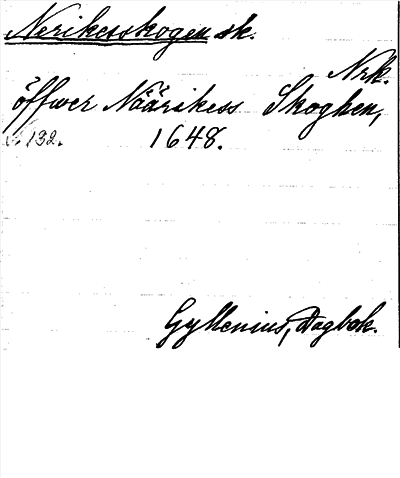 Nerikesskogen sk.
Nrk.
öffwer Näärikess Skoghen,
s. 132. 1648.
Gyllenius, Dagbok.